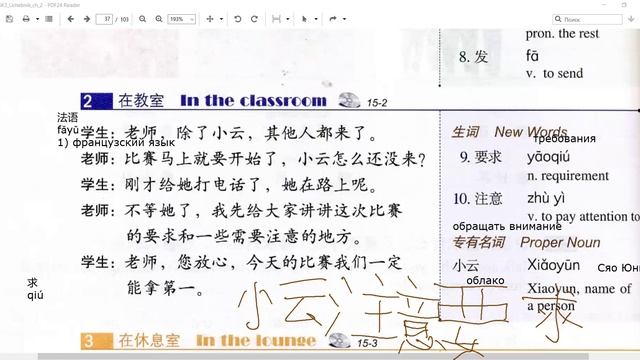 SK3_Uchebnik_ch_2 - PDF24 Reader
37 / 103
193%
Поиск
pron. the rest
8. 发 fā
v. to send
2 在教室 In the classroom 15-2
法语
fǎyǔ
1) французский язык
学生：老师，除了小云，其他人都来了。
老师：比赛马上就要开始了，小云怎么还没来？
学生：刚才给她打电话了，她在路上呢。
老师：不等她了，我先给大家讲讲这次比赛
的要求和一些需要注意的地方。
学生：老师，您放心，今天的比赛我们一定
能拿第一。
求
qiú
生词 New Words
требования
9. 要求 yāoqiú
n. requirement
10. 注意 zhù yì
v. to pay attention to
обращать внимание
专有名词 Proper Noun
小云 Xiǎoyūn Сяо Юн
облако
Xiaoyun, name of
a person
小云 注意 要求
3 在休息室 In the lounge 15-3